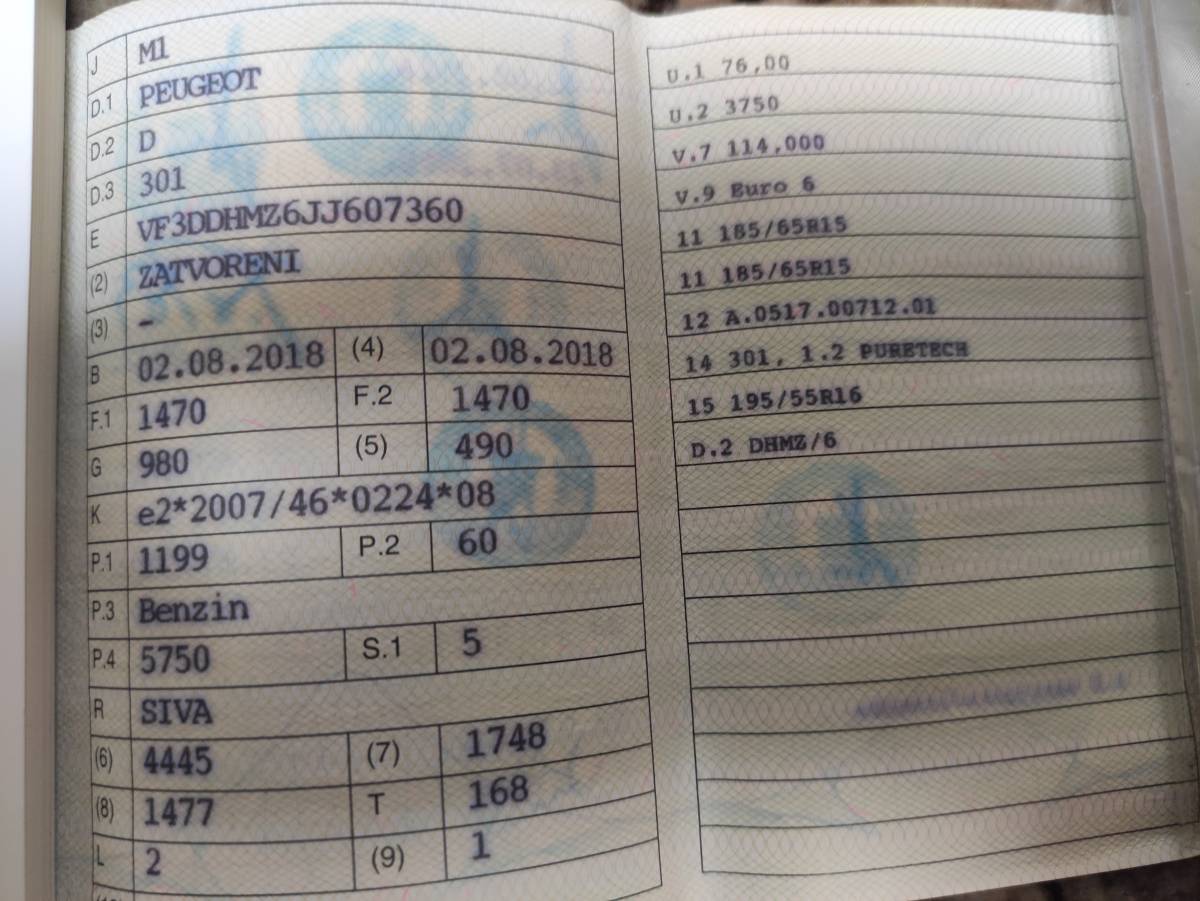 J M1
D.1 PEUGEOT
D.2 D
D.3 301
E VF3DDHMZ6JJ607360
(2) ZATVORENI
(3) -
B 02.08.2018 (4) 02.08.2018
F.1 1470 F.2 1470
G 980 (5) 490
K e2*2007/46*0224*08
P.1 1199 P.2 60
P.3 Benzin
P.4 5750 S.1 5
R SIVA
(6) 4445 (7) 1748
(8) 1477 T 168
L 2 (9) 1
U.1 76,00
U.2 3750
V.7 114,000
V.9 Euro 6
11 185/65R15
11 185/65R15
12 A.0517.00712.01
14 301, 1.2 PURETECH
15 195/55R16
D.2 DHMZ/6